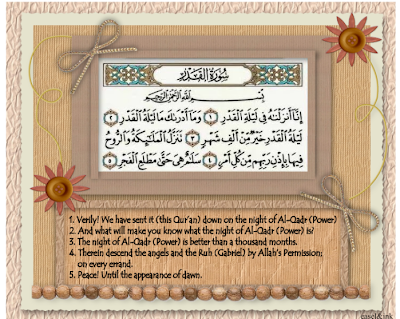 سُورَةُ القَدْرِ
بِسْمِ اللَّهِ الرَّحْمَٰنِ الرَّحِيمِ
إِنَّا أَنزَلْنَاهُ فِي لَيْلَةِ الْقَدْرِ ١ وَمَا أَدْرَاكَ مَا لَيْلَةُ الْقَدْرِ ٢
لَيْلَةُ الْقَدْرِ خَيْرٌ مِّنْ أَلْفِ شَهْرٍ ٣ تَنَزَّلُ الْمَلَائِكَةُ وَالرُّوحُ
فِيهَا بِإِذْنِ رَبِّهِم مِّن كُلِّ أَمْرٍ ٤ سَلَامٌ هِيَ حَتَّىٰ مَطْلَعِ الْفَجْرِ ٥
1. Verily! We have sent it (this Qur'an) down on the night of Al-Qadr (Power)
2. And what will make you know what the night of Al-Qadr (Power) is?
3. The night of Al-Qadr (Power) is better than a thousand months.
4. Therein descend the angels and the Ruh (Gabriel) by Allah's Permission;
on every errand.
5. Peace! Until the appearance of dawn.
easel&ink